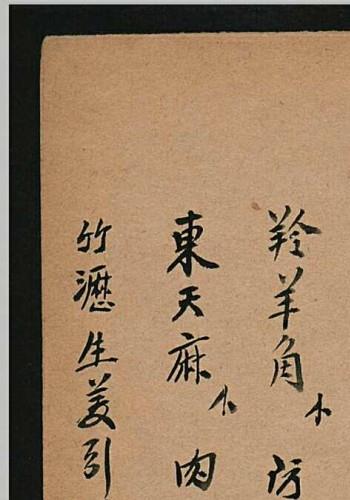 羚羊角小防
東天麻小肉
竹瀝生姜引